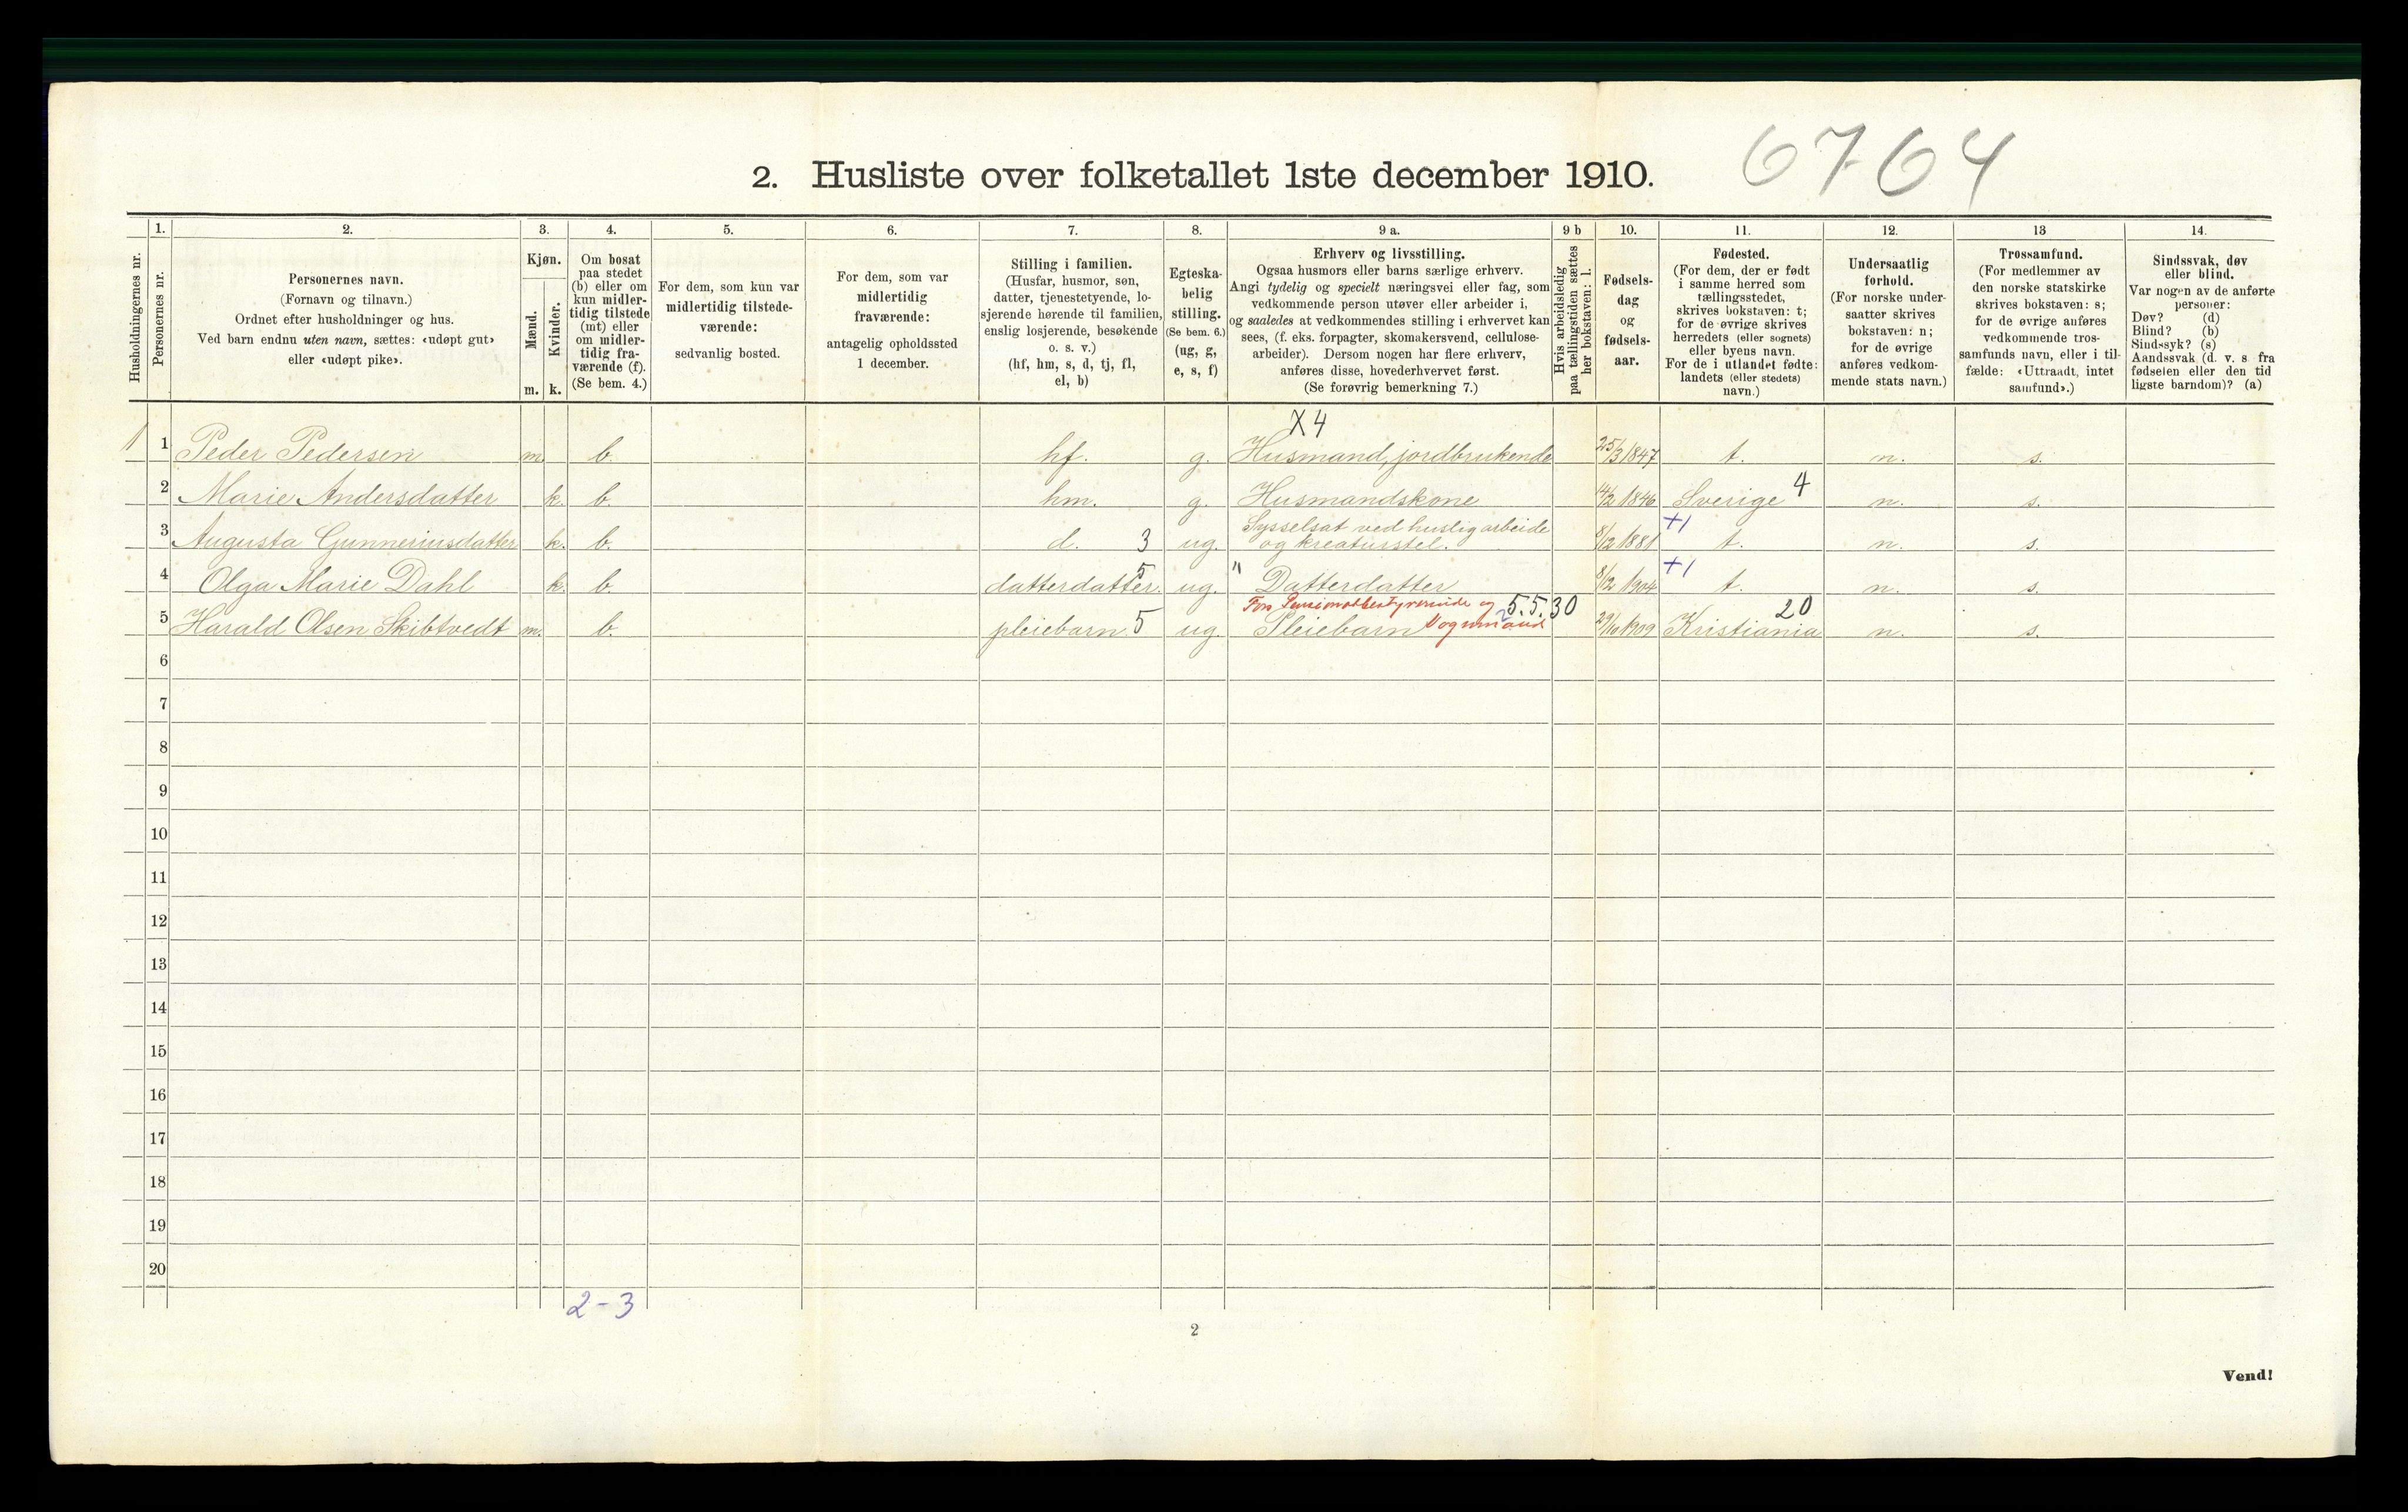 6764
2. Husliste over folketallet 1ste december 1910.
Husholdningernes nr.
1.
Personernes nr.
2.
Personernes navn.
(Fornavn og tilnavn.)
Ordnet efter husholdninger og hus.
Ved barn endnu uten navn, sættes: «udøpt gut»
eller «udøpt pike».
3.
Kjøn.
Mænd.
Kvinder.
m. k.
4.
Om bosat
paa stedet
(b) eller om
kun midler-
tidig tilstede
(mt) eller
om midler-
tidig fra-
værende (f).
(Se bem. 4.)
5.
For dem, som kun var
midlertidig tilstede-
værende:
sedvanlig bosted.
6.
For dem, som var
midlertidig
fraværende:
antagelig opholdssted
1 december.
7.
Stilling i familien.
(Husfar, husmor, søn,
datter, tjenestetyende, lo-
sjerende hørende til familien,
enslig losjerende, besøkende
o. s. v.)
(hf, hm, s, d, tj, fl,
el, b)
8.
Egteska-
belig
stilling.
(Se bem. 6.)
(ug, g,
e, s, f)
9 a.
Erhverv og livsstilling.
Ogsaa husmors eller barns særlige erhverv.
Angi tydelig og specielt næringsvei eller fag, som
vedkommende person utøver eller arbeider i,
og saaledes at vedkommendes stilling i erhvervet kan
sees, (f. eks. forpagter, skomakersvend, cellulose-
arbeider). Dersom nogen har flere erhverv,
anføres disse, hovederhvervet først.
(Se forøvrig bemerkning 7.)
9 b
Hvis arbeidsledig
paa tællingstiden sættes
her bokstaven: l.
10.
Fødsels-
dag
og
fødsels-
aar.
11.
Fødested.
(For dem, der er født
i samme herred som
tællingsstedet,
skrives bokstaven: t;
for de øvrige skrives
herredets (eller sognets)
eller byens navn.
For de i utlandet fødte:
landets (eller stedets)
navn.)
12.
Undersaatlig
forhold.
(For norske under-
saatter skrives
bokstaven: n;
for de øvrige
anføres vedkom-
mende stats navn.)
13
Trossamfund.
(For medlemmer av
den norske statskirke
skrives bokstaven: s;
for de øvrige anføres
vedkommende tros-
samfunds navn, eller i til-
fælde: «Uttraadt, intet
samfund».)
14.
Sindssvak, døv
eller blind.
Var nogen av de anførte
personer:
Døv? (d)
Blind? (b)
Sindssyk? (s)
Aandssvak (d. v. s. fra
fødselen eller den tid
ligste barndom)? (a)
X4
1 1 Peder Pedersen m. b. hf. g. Husmand, jordbrukende 25/3 1847 t. n. s.
2 Marie Andersdatter k. b. hm. g. Husmandskone 14/2 1846 Sverige 4 n. s.
3 Augusta Gunneriusdatter k. b. d. 3 ug. Sysselsat ved huslig arbeide
og kreaturstel. 8/12 1881 +1 t. n. s.
4 Olga Marie Dahl k. b. datterdatter. 5 ug. " Datterdatter 8/12 1904 +1 t. n. s.
5.5.30
5 Harald Olsen Skibtvedt m. b. pleiebarn 5 ug. Pleiebarn 29/10 1909 Kristiania 20 n. s.
6
7
8
9
10
11
12
13
14
15
16
17
18
19
20
2-3
2
Vend!